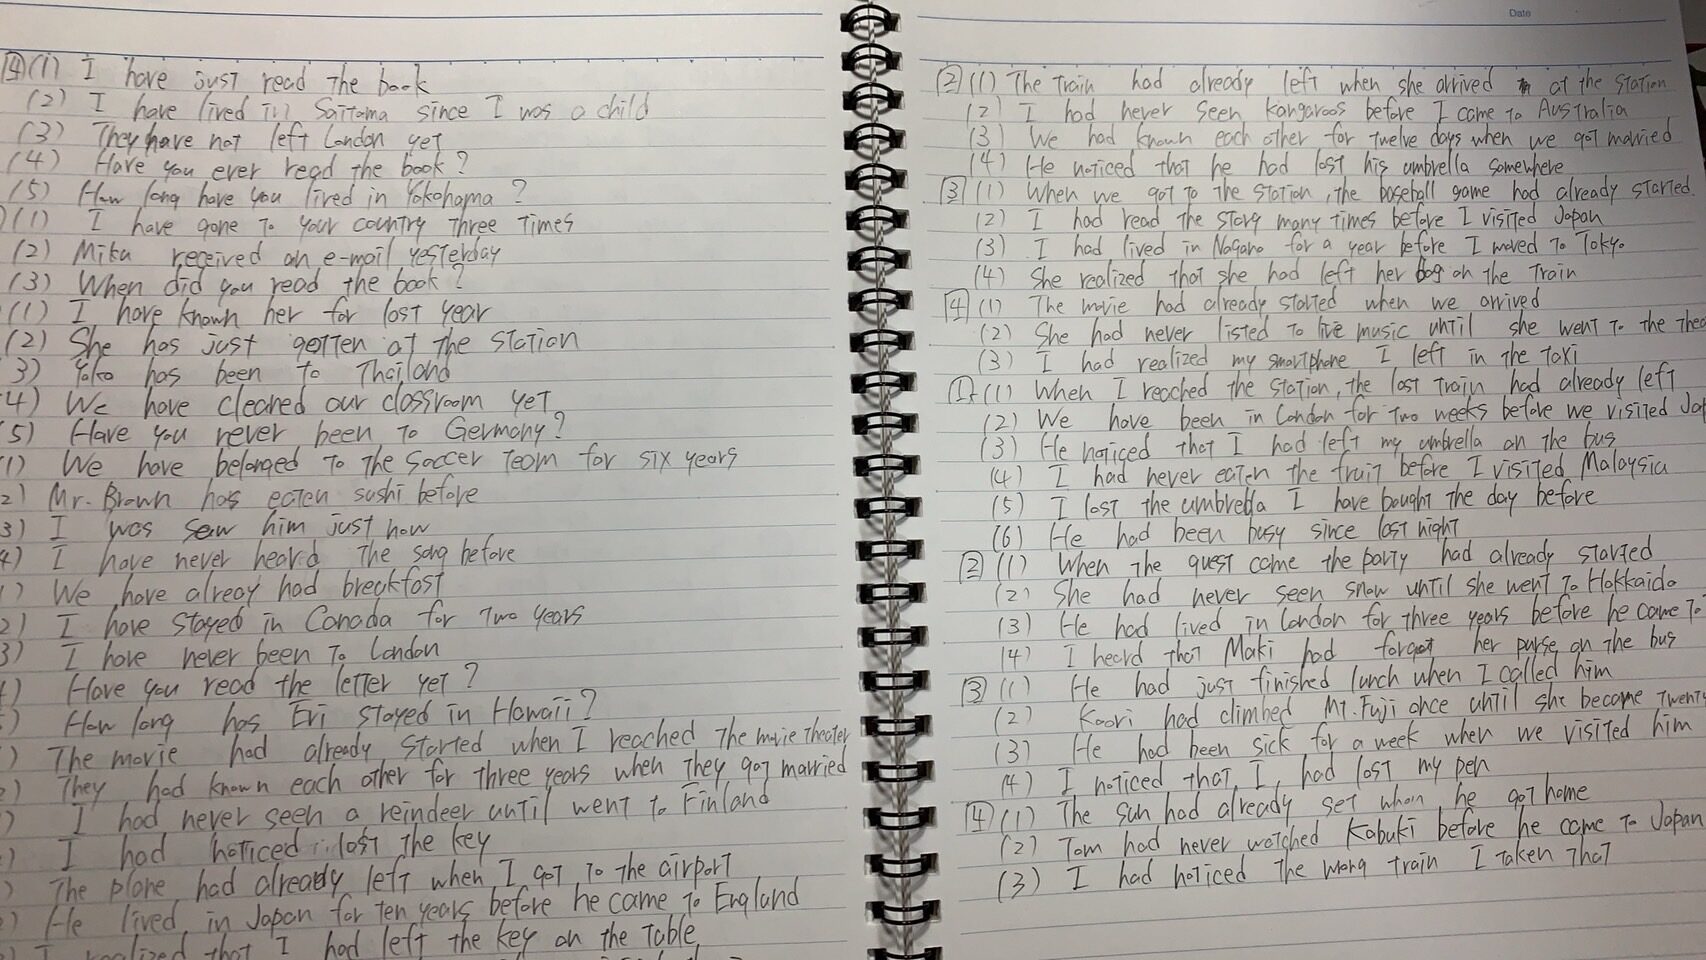 4 (1) I have just read the book
(2) I have lived in Saitama since I was a child
(3) They have not left London yet
(4) Have you ever read the book?
(5) How long have you lived in Yokohama?
(1) I have gone to your country three times
(2) Mika received an e-mail yesterday
(3) When did you read the book?
(1) I have known her for last year
(2) She has just gotten at the station
3) Yoko has been to Thailand
4) We have cleaned our classroom yet
5) Have you never been to Germany?
1) We have belonged to the soccer team for six years
2) Mr. Brown has eaten sushi before
3) I was saw him just now
4) I have never heard the song before
) We have alreay had breakfast
2) I have stayed in Canada for two years
3) I have never been to London
) Have you read the letter yet?
) How long has Eri stayed in Hawaii?
) The movie had already started when I reached the movie theater
) They had known each other for three years when they got married
) I had never seen a reindeer until went to Finland
) I had noticed lost the key
) The plane had already left when I got to the airport
) He lived in Japan for ten years before he came to England
I realized that I had left the key on the table
Date
2 (1) The train had already left when she arrived at the station
(2) I had never seen kangaroos before I came to Australia
(3) We had known each other for twelve days when we got married
(4) He noticed that he had lost his umbrella somewhere
3 (1) When we got to the station, the baseball game had already started.
(2) I had read the story many times before I visited Japan
(3) I had lived in Nagano for a year before I moved to Tokyo
(4) She realized that she had left her bag on the train
4 (1) The movie had already started when we arrived
(2) She had never listed to live music until she went to the thea
(3) I had realized my smartphone I left in the taxi
1 (1) When I reached the station, the last train had already left
(2) We have been in London for two weeks before we visited Jap
(3) He noticed that I had left my umbrella on the bus
(4) I had never eaten the fruit before I visited Malaysia
(5) I lost the umbrella I have bought the day before
(6) He had been busy since last night
2 (1) When the guest come the party had already started
(2) She had never seen snow until she went to Hokkaido
(3) He had lived in London for three years before he came to
(4) I heard that Maki had forgot her purse on the bus
3 (1) He had just finished lunch when I called him
(2) Kaori had climbed Mt. Fuji once until she become twenty
(3) He had been sick for a week when we visited him
(4) I noticed that I had lost my pen
4 (1) The sun had already set when he got home
(2) Tom had never watched Kabuki before he came to Japan
(3) I had noticed the wrong train I taken that